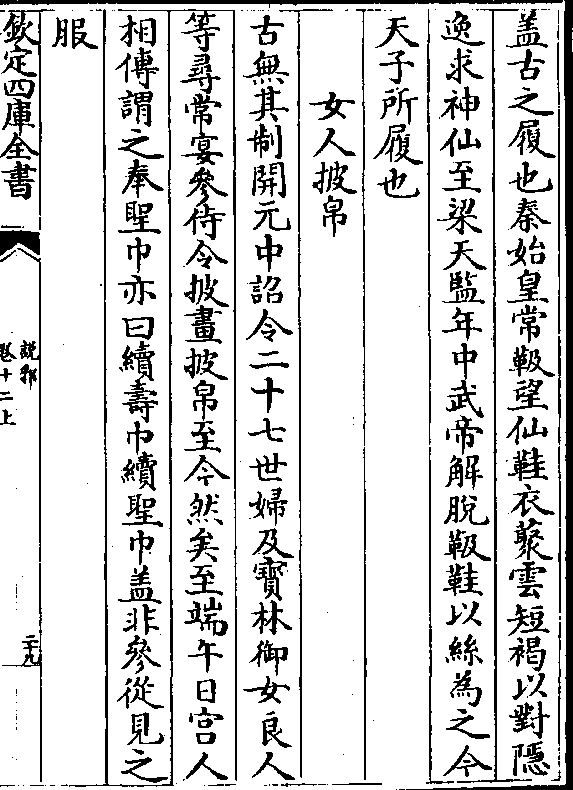 盖古之履也秦始皇常靸望仙鞋衣藂雲短褐以對隠
逸求神仙至梁天監年中武帝解脫靸鞋以絲為之今
天子所履也
女人披帛
古無其制開元中詔令二十七世婦及寶林御女良人
等尋常宴參侍令披畫披帛至今然矣至端午日宫人
相傳謂之奉聖巾亦曰續壽巾續聖巾盖非參從見之
服
欽定四庫全書
說郛
卷十二上
二十九